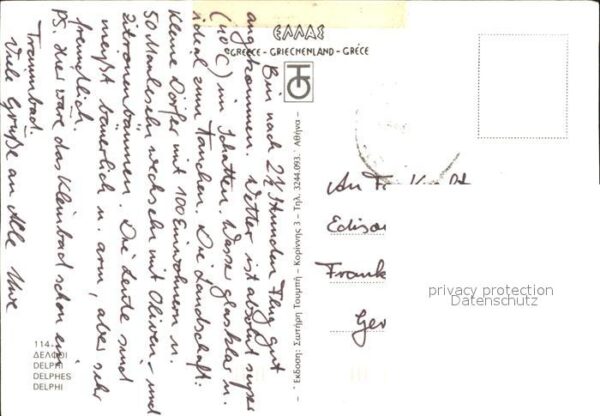 ΕΛΛΑΣ
GREECE - GRIECHENLAND - GRÈCE
Bin nach 2½ Stunden Flug gut
angekommen. Wetter ist absolut super
(40°C) im Schatten. Wasser glasklar u.
ideal zum Tauchen. Die Landschaft:
Kleine Dörfer mit 100 Einwohnern u.
50 Maulesel wechseln mit Oliven- und
Zitronenbäumen. Die Leute sind
meist bäuerlich u. arm, aber sehr
freundlich.
PS. Hier wäre das Kleinbad schon ein
Traumbad.
Viele Grüße an Alle Uwe
114
ΔΕΛΦΟΙ
DELPHI
DELPHES
DELPHI
Έκδοση: Σωτήρη Τουμπή - Κορίννης 3 - Τηλ. 3244.093. Αθήνα
An
Edison
Frank
Ger
privacy protection
Datenschutz